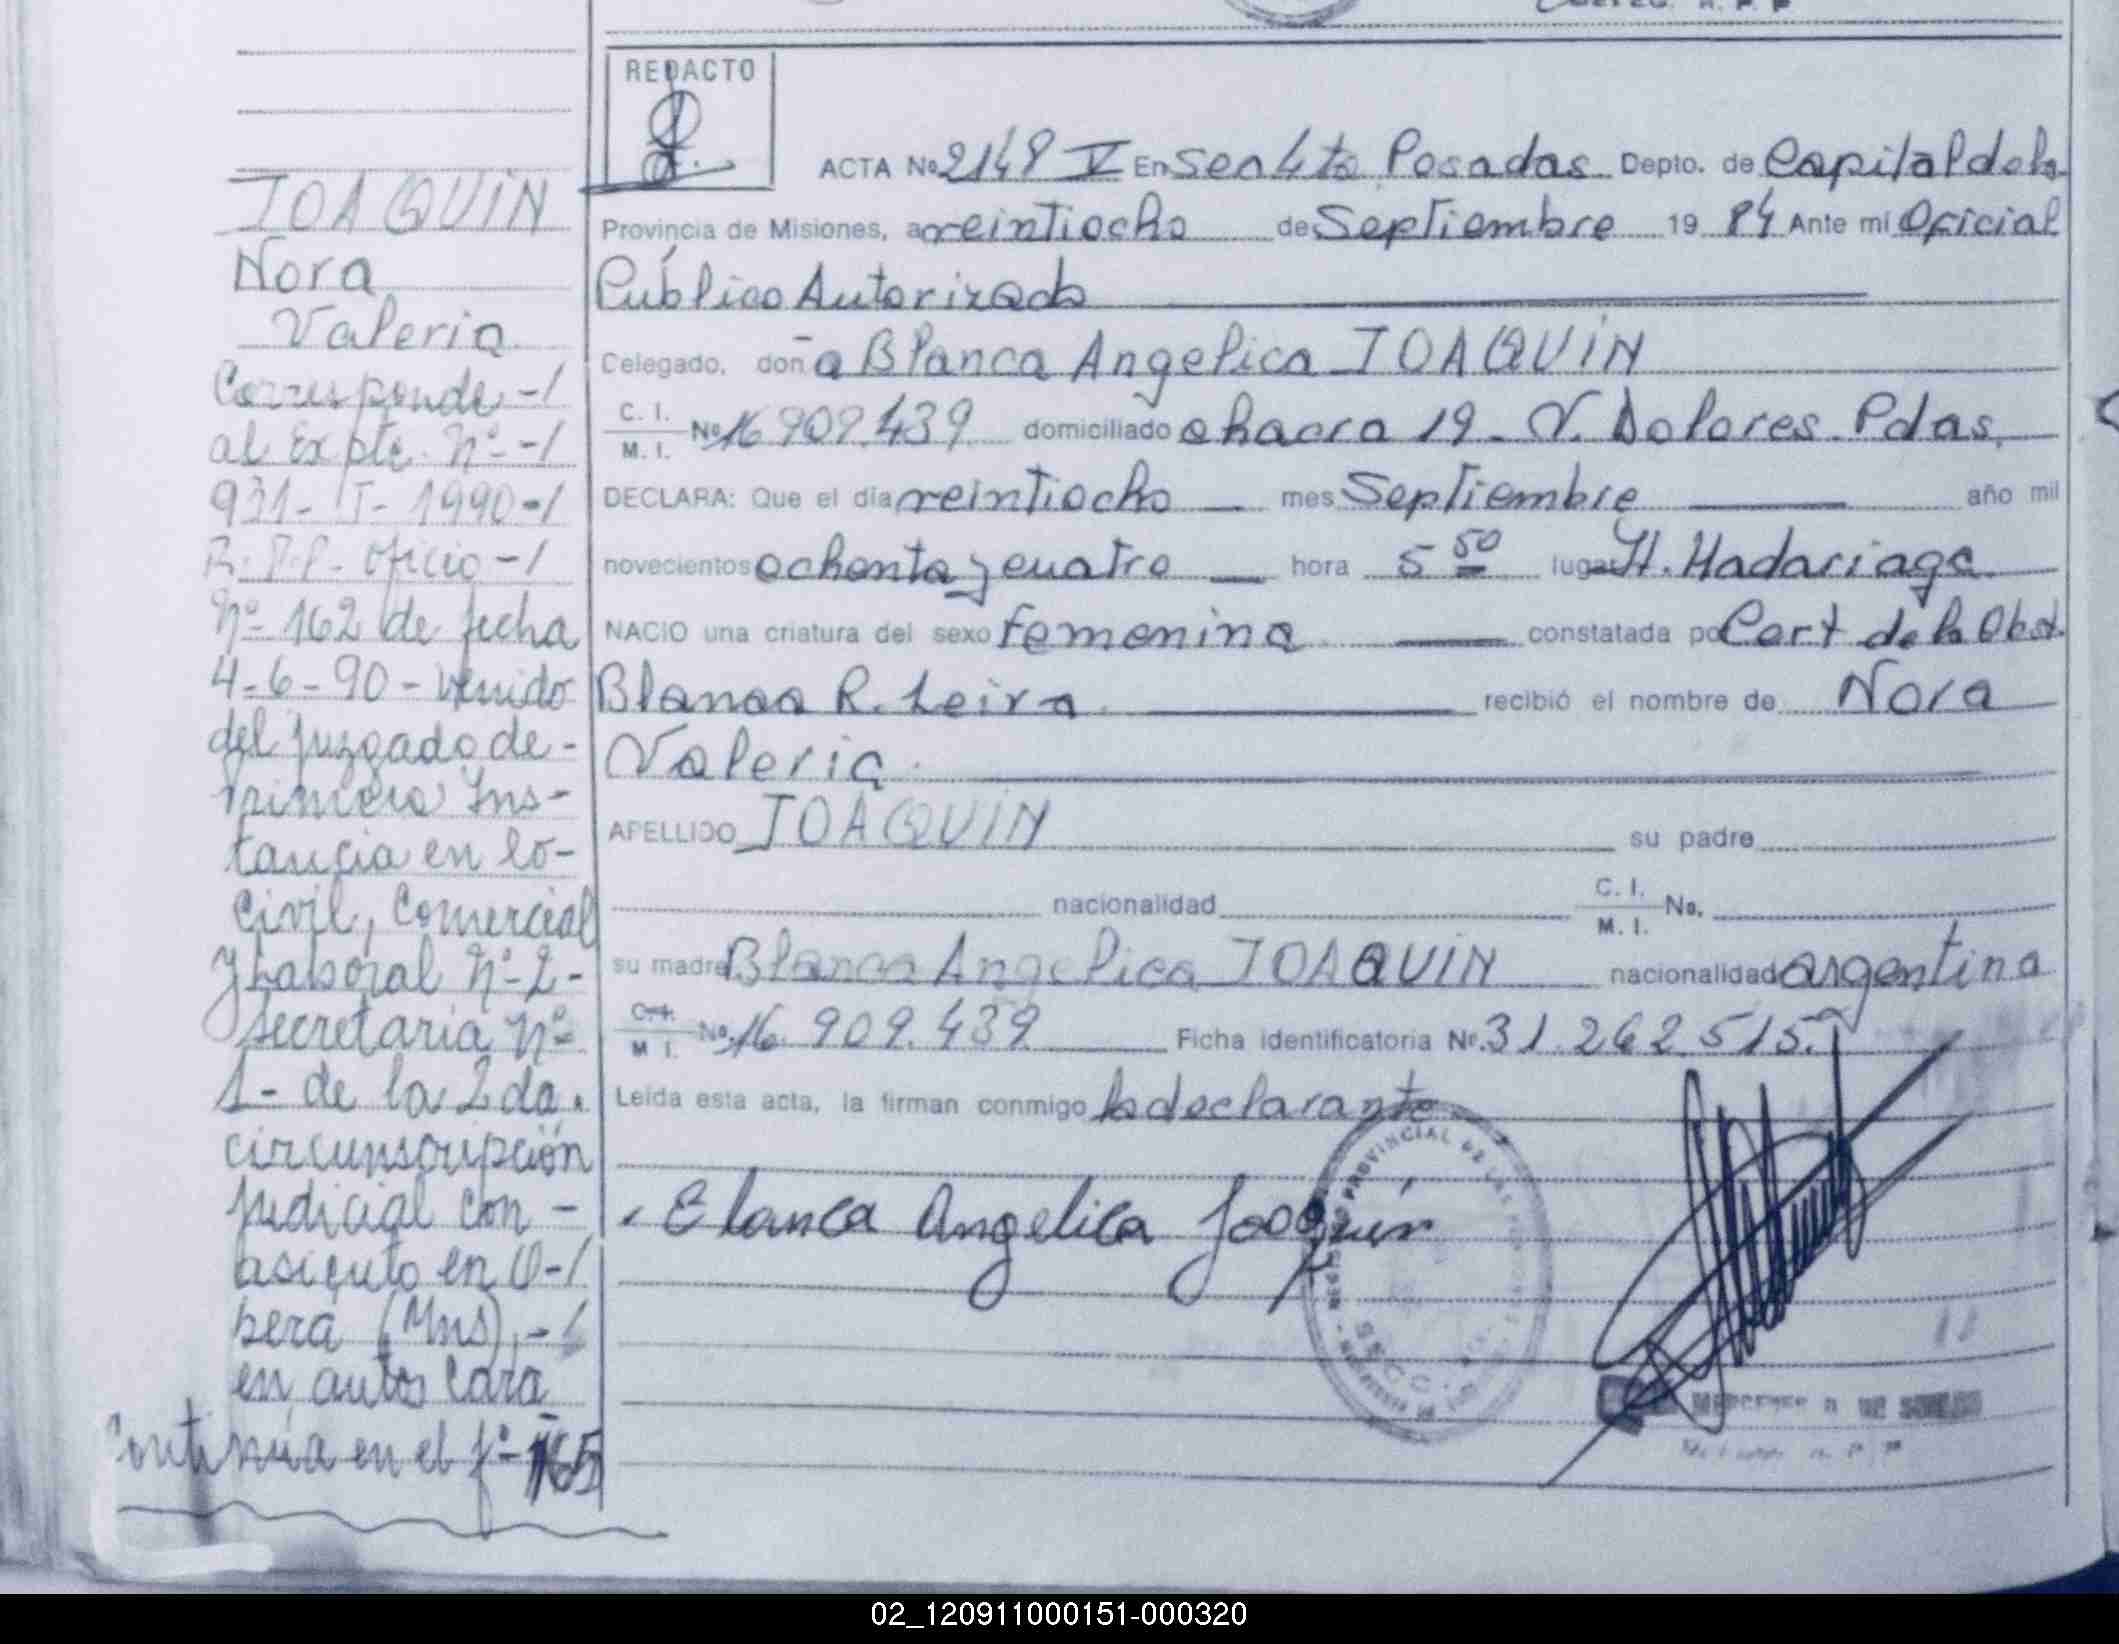 REDACTO
ACTA No 2148 V En Sec 4ta Posadas Depto. de Capital de la
Provincia de Misiones, a veintiocho de Septiembre 19 84 Ante mi Oficial
Público Autorizado
Celegado, doña Blanca Angelica JOAQUIN
C. I.
M. I. No 16 909.439 domiciliado chacra 19 - V. Dolores. Pdas.
DECLARA: Que el día veintiocho mes Septiembre año mil
novecientos ochenta y cuatro hora 5 50 lugar H. Madariaga
NACIO una criatura del sexo femenina constatada por Cert de la Obst.
Blanca R. Leiva recibió el nombre de Nora
Valeria
APELLIDO JOAQUIN su padre
nacionalidad C. I. M. I. No.
su madre Blanca Angelica JOAQUIN nacionalidad argentina
C. I.
M I. No. 16. 909.439 Ficha identificatoria No. 31.262.515.
Leída esta acta, la firman conmigo la declarante
Blanca Angelica Joaquín
PROVINCIAL DE LAS
SECC.
JOAQUIN
Nora
Valeria
Corresponde -/
al Expte. Nº -/
931- J- 1990 -/
R.P.P. Oficio -/
Nº 162 de fecha
4-6-90 - venido
del juzgado de -
Primera Ins-
tancia en lo-
Civil, Comercial
y Laboral Nº 2 -
Secretaria Nº
1- de la 2da.
circunscripción
judicial con -
asiento en O-/
berá (Mns), -/
en autos cara
Continúa en el fº 165
02_120911000151-000320